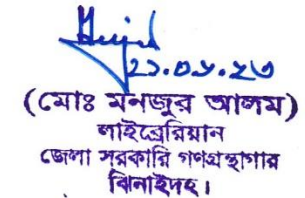 ২১.০৮.২৩
(মোঃ মনজুর আলম)
লাইব্রেরিয়ান
জেলা সরকারি গণগ্রন্থাগার
ঝিনাইদহ।